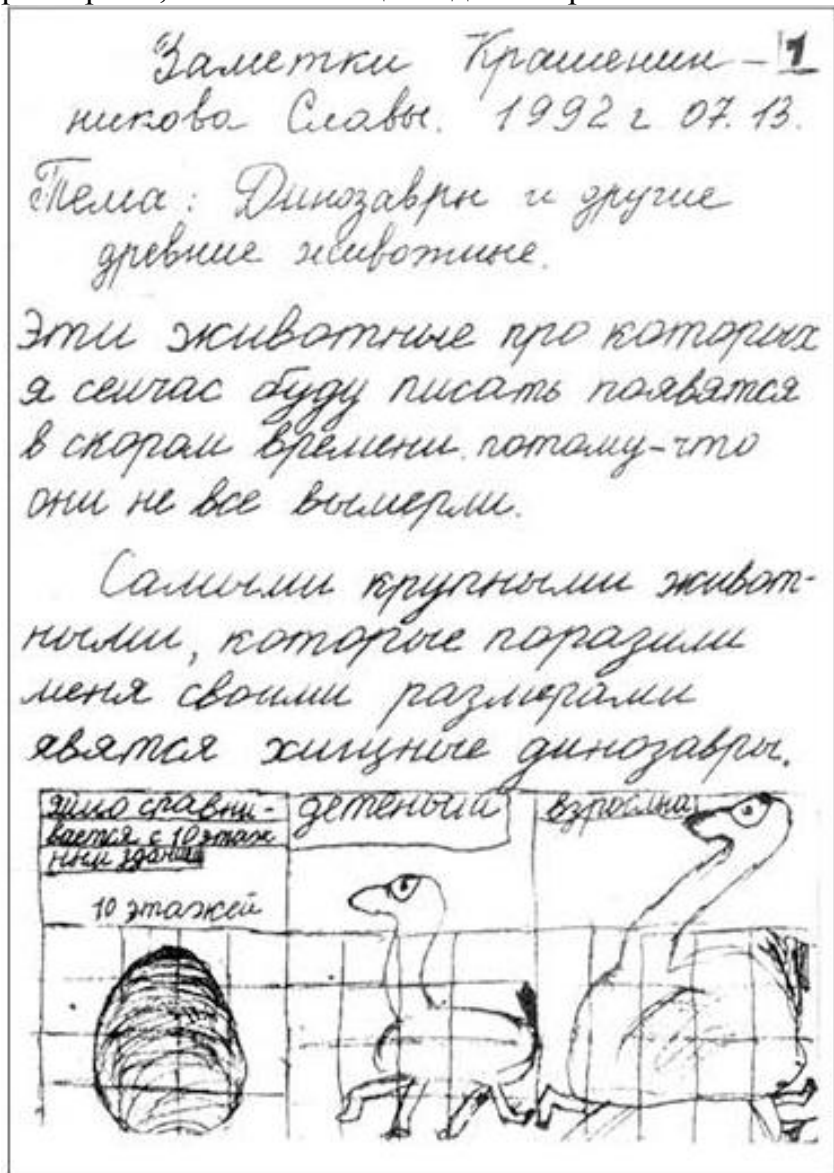 Заметки Крашенин- 1
никова Славы. 1992 г 07. 13.
Тема: Динозавры и другие
древние животние.
Эти животные про которых
я сеичас буду писать появятся
в скором времени. потому-что
они не все вымерли.
Самыми крупными живот-
ными, которые поразили
меня своими размерами
явятся хищные динозавры.
яйцо сравни-
вается с 10 этаж
ным здание
10 этажей
детёныш
взрослиа